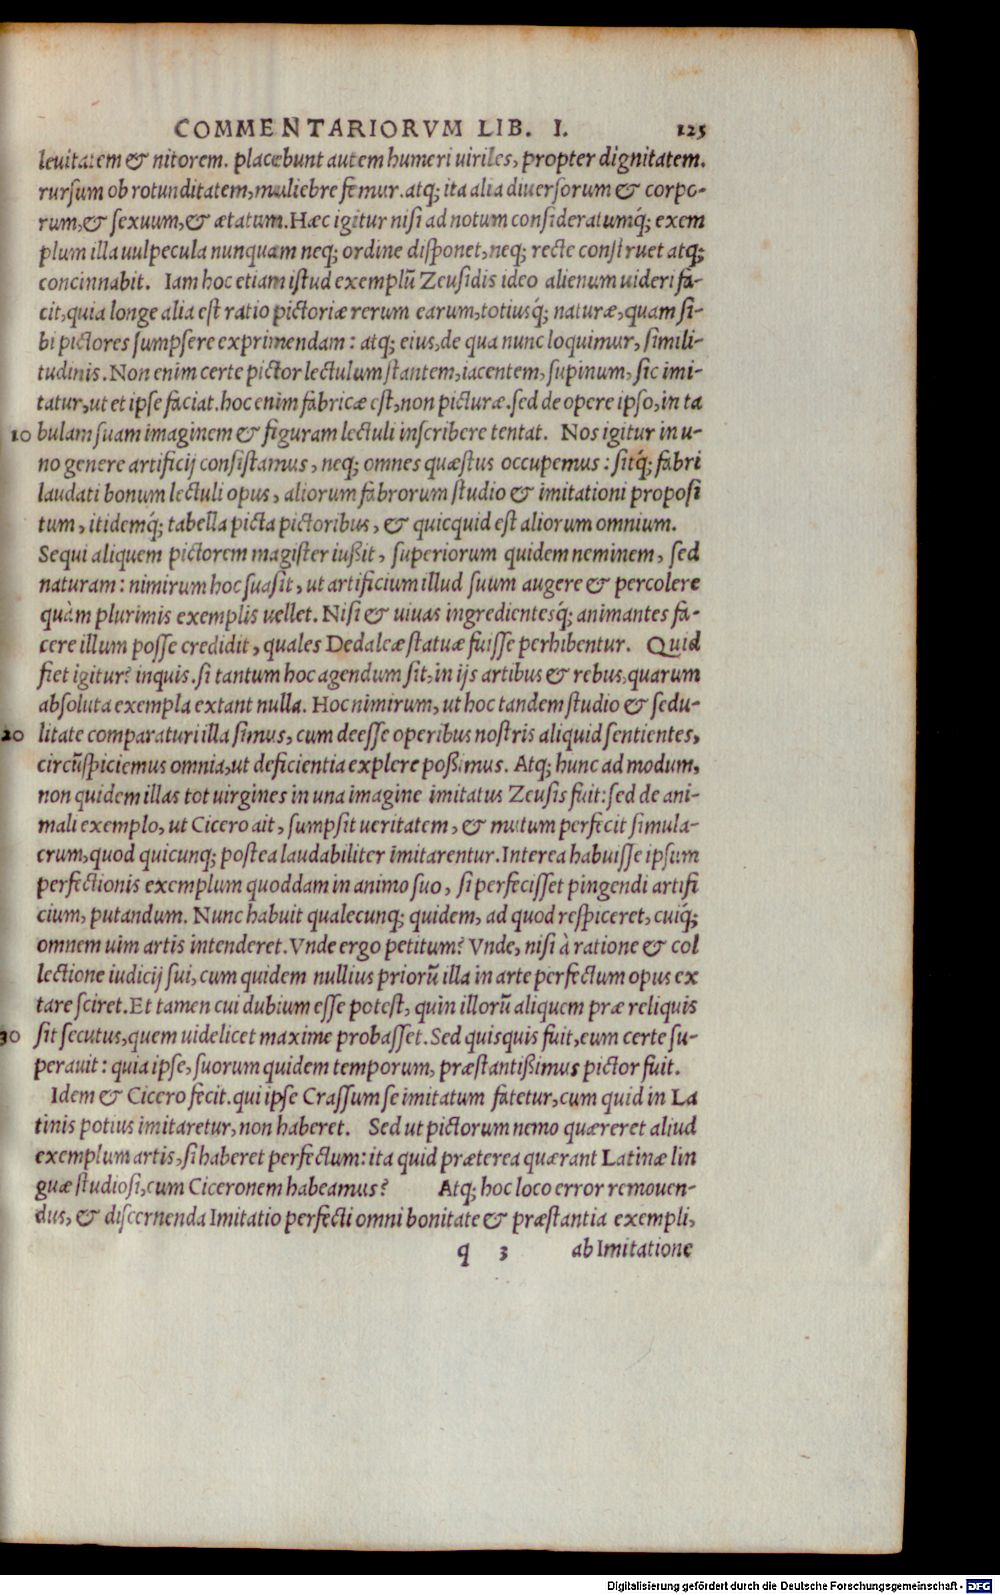 COMMENTARIORVM LIB. I. 125
leuitatem & nitorem. placebunt autem humeri uiriles, propter dignitatem.
rursum ob rotunditatem, muliebre femur. atq; ita alia diuersorum & corpo-
rum, & sexuum, & ætatum. Hæc igitur nisi ad notum consideratumq́; exem
plum illa uulpecula nunquam neq; ordine disponet, neq; recte construet atq;
concinnabit. Iam hoc etiam istud exemplũ Zeusidis ideo alienum uideri fa-
cit, quia longe alia est ratio pictoriæ rerum earum, totiusq́; naturæ, quam si-
bi pictores sumpsere exprimendam: atq; eius, de qua nunc loquimur, simili-
tudinis. Non enim certe pictor lectulum stantem, iacentem, supinum, sic imi-
tatur, ut et ipse faciat. hoc enim fabricæ est, non picturæ. sed de opere ipso, in ta
10 bulam suam imaginem & figuram lectuli inscribere tentat. Nos igitur in u-
no genere artificij consistamus, neq; omnes quæstus occupemus: sitq́; fabri
laudati bonum lectuli opus, aliorum fabrorum studio & imitationi proposi
tum, itidemq́; tabella picta pictoribus, & quicquid est aliorum omnium.
Sequi aliquem pictorem magister iußit, superiorum quidem neminem, sed
naturam: nimirum hoc suasit, ut artificium illud suum augere & percolere
quàm plurimis exemplis uellet. Nisi & uiuas ingredientesq́; animantes fa-
cere illum posse credidit, quales Dedaleæ statuæ fuisse perhibentur. Quid
fiet igitur? inquis. si tantum hoc agendum sit, in ijs artibus & rebus, quarum
absoluta exempla extant nulla. Hoc nimirum, ut hoc tandem studio & sedu-
20 litate comparaturi illa simus, cum deesse operibus nostris aliquid sentientes,
circũspiciemus omnia, ut deficientia explere poßimus. Atq; hunc ad modum,
non quidem illas tot uirgines in una imagine imitatus Zeusis fuit: sed de ani-
mali exemplo, ut Cicero ait, sumpsit ueritatem, & mutum perfecit simula-
crum, quod quicunq; postea laudabiliter imitarentur. Interea habuisse ipsum
perfectionis exemplum quoddam in animo suo, si perfecisset pingendi artifi
cium, putandum. Nunc habuit qualecunq; quidem, ad quod respiceret, cuiq́;
omnem uim artis intenderet. Vnde ergo petitum? Vnde, nisi à ratione & col
lectione iudicij sui, cum quidem nullius priorũ illa in arte perfectum opus ex
tare sciret. Et tamen cui dubium esse potest, quin illorũ aliquem præ reliquis
30 sit secutus, quem uidelicet maxime probasset. Sed quisquis fuit, eum certe su-
perauit: quia ipse, suorum quidem temporum, præstantißimus pictor fuit.
Idem & Cicero fecit. qui ipse Crassum se imitatum fatetur, cum quid in La
tinis potius imitaretur, non haberet. Sed ut pictorum nemo quæreret aliud
exemplum artis, si haberet perfectum: ita quid præterea quærant Latinæ lin
guæ studiosi, cum Ciceronem habeamus? Atq; hoc loco error remouen-
dus, & discernenda Imitatio perfecti omni bonitate & præstantia exempli,
q 3 ab Imitatione
Digitalisierung gefördert durch die Deutsche Forschungsgemeinschaft - DFG